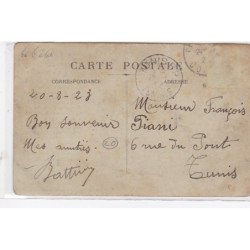 CARTE POSTALE
CORRESPONDANCE
ADRESSE
20-8-23
Boy Souvenir
Mes amitiés
Monsieur François
Fiani
6 rue du Pont
Tunis